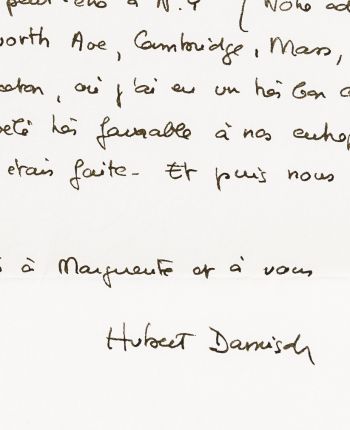 à N.Y (Notre ad
worth Ave, Cambridge, Mass,
, où j'ai eu un très bon
été très favorable à nos
etais faite - Et puis nous
à Marguerite et à vous
Hubert Damisch